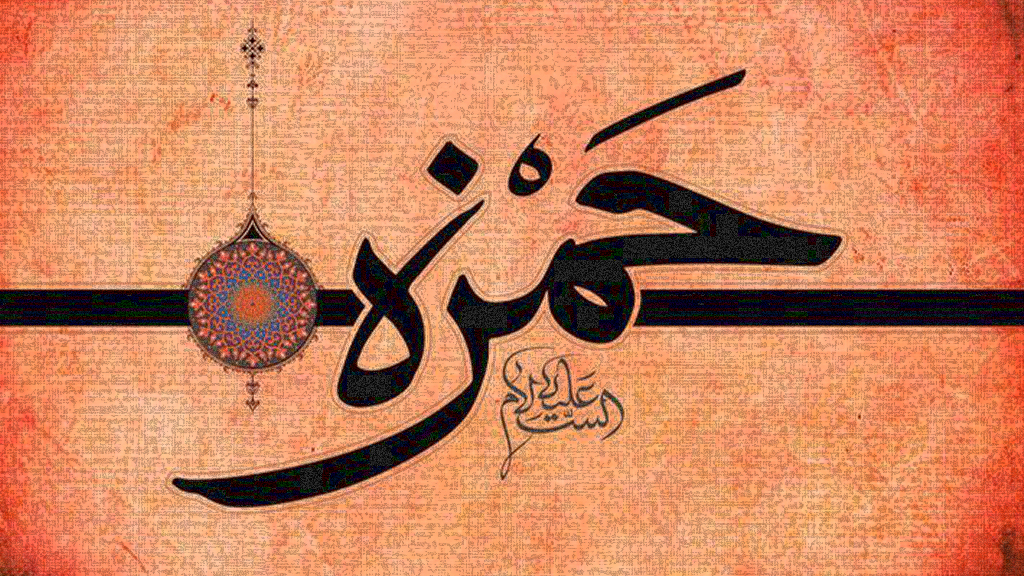 حَمْزه
عليه السَّلام